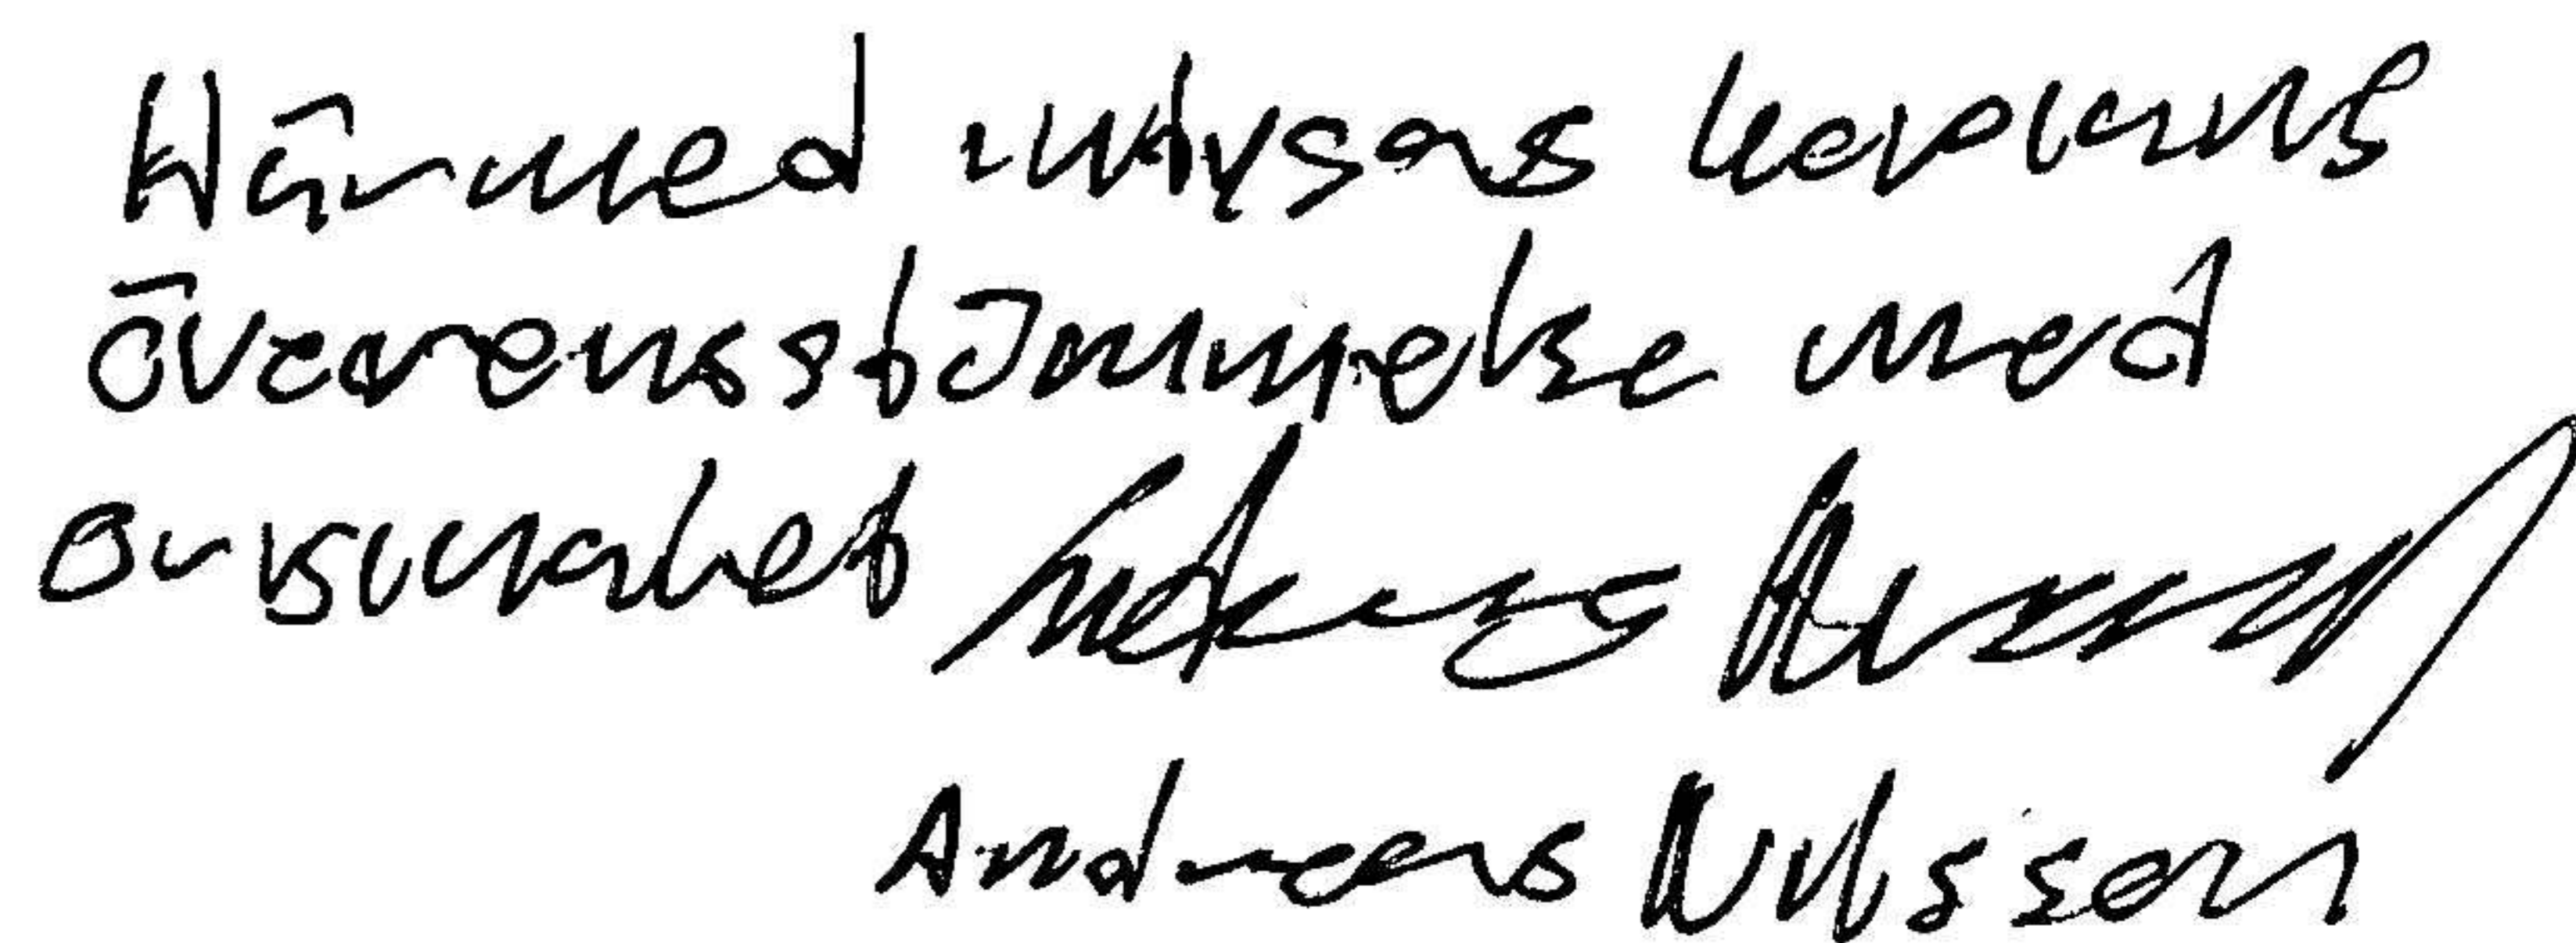 Härmed intygas kopians
överensstämmelse med
originalet
Andreas Nilsson